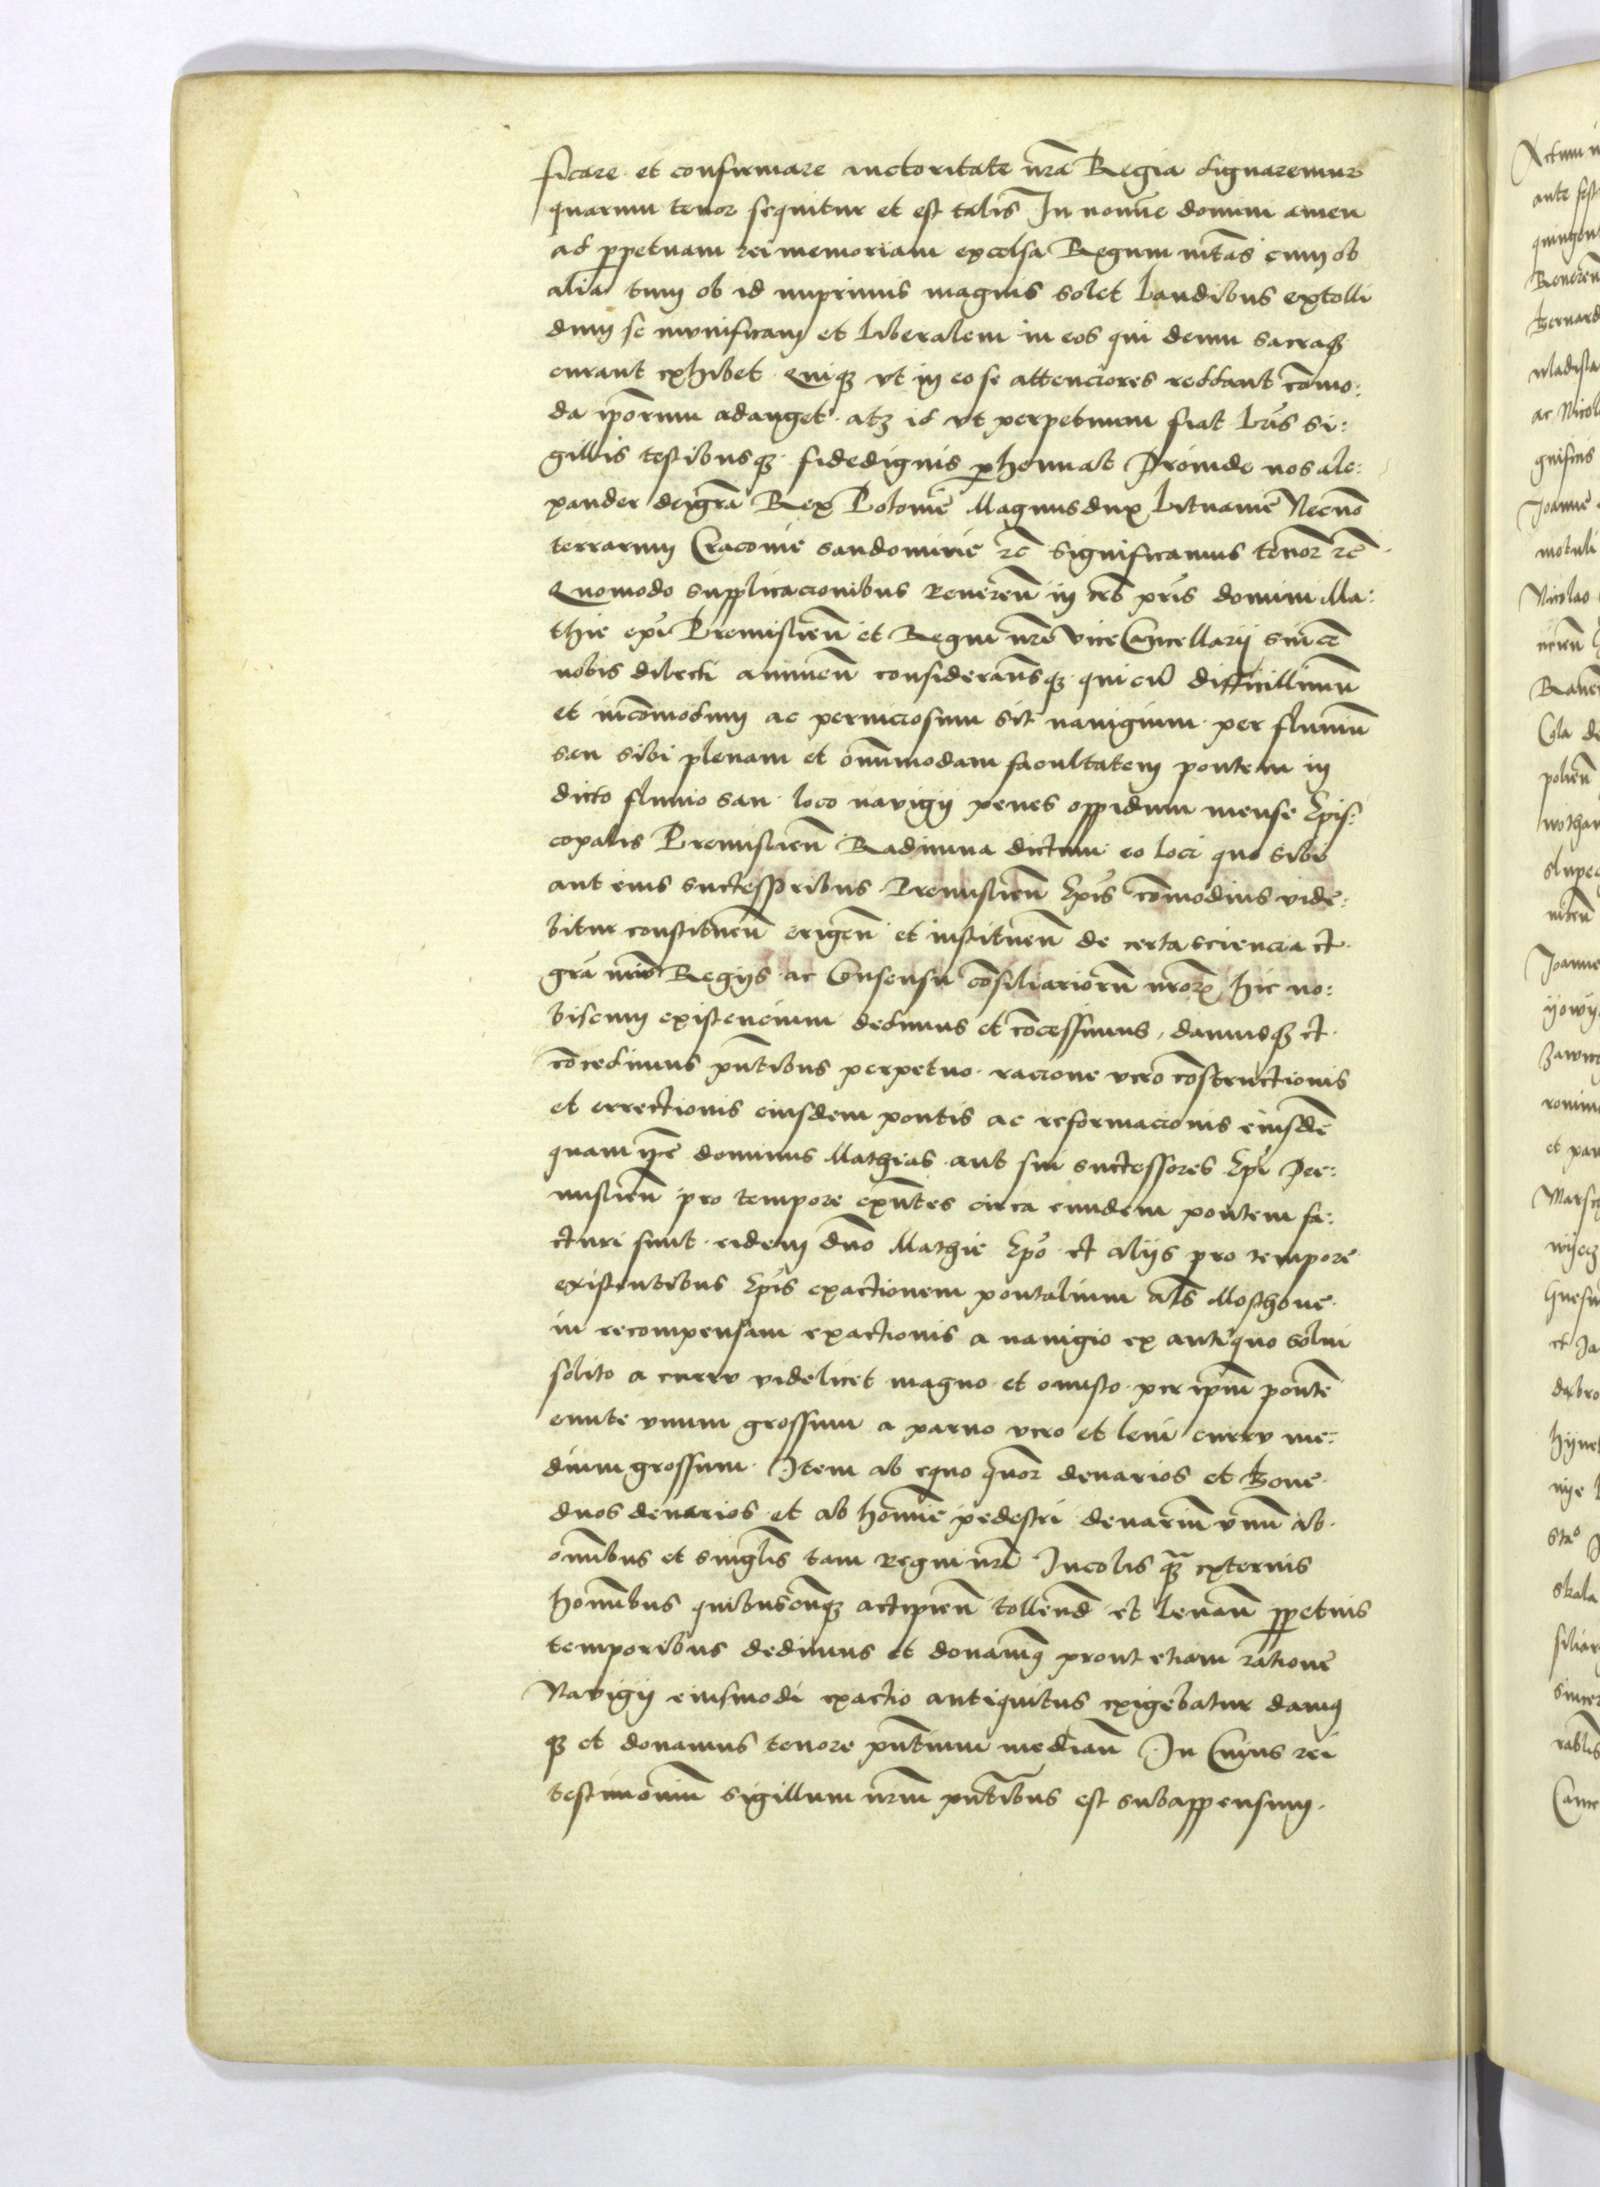 ficare et confirmare auctoritate nrã Regia dignaremur
quarum tenor sequitur et est talis In nomĩe domini amen
ad ꝑpetuam rei memoriam excelsa Regum mtas cum ob
alia tum ob id imprimis magnis solet laudibus extolli
dum se munificam et liberalem in eos qui demum sacraqꝫ
curant exhibet Quiqꝫ ut in eo se attenciores reddant cõmo:
da ipõrum adauget atqꝫ id ut perpetuum fiat lrĩs si:
gillis testibusqꝫ fidedignis ꝑhennat Proinde nos ale:
xander dei grã Rex Polonie Magnus dux Lituanie Necnõ
terrarum Cracovie sandomirie zc̃ significamus tenor zc̃
Quomodo supplicacionibus Reveren̄ in cr̄o pr̄is domini Ma:
thie ep̃i Premislien̄ et Regni nrĩ vice Cancellarij sincẽ
nobis dilecti annuen̄ considerantesqꝫ qui cũ difficillimũ
et incõmodum ac perniciosum sit navigium per fluviũ
san sibi plenam et omnimodam facultatem pontem in
dicto fluvio san loco navigij penes oppidum mense Epis:
copalis Premislien̄ Radimna dictum eo loci quo sibi
aut eius successoribus Premislien̄ Ep̃is cõmodius vide:
bitur constituen̄ erigen̄ et instituen̄ de certa sciencia et
grã nrĩs Regijs ac Consensu cõsiliariorũ nrõrꝫ hic no:
biscum existencium dedimus et cõcessimus, damusqꝫ et
cõcedimus pn̄tibus perpetuo racione vero cõstructionis
et errectionis eiusdem pontis ac reformacionis eiusdẽ
quam ip̃e dominus Mathias aut sui successores Ep̃i Pre:
mislien̄ pro tempore exñtes circa eundem pontem fa:
cturi sunt eidem dño Mathie Ep̃o et alijs pro tempore
existentibus Ep̃is exactionem pontalium al̃s Mosthove
in recompensam exactionis a navigio ex antiquo solui
solito a curru videlicet magno et onusto per ip̃m pontẽ
eunte unum grossum a paruo vero et leui curru me:
dium grossum Item ab equo quor̃ denarios et Boue
duos denarios et ab homĩe pedestri denariũ vnũ ab
omnibus et singlĩs tam Regni nrĩ Incolis qꝫ externis
homĩbus quibuscunqꝫ accipien̄ tollend̄ et leuan̄ ꝑpetuis
temporibus dedimus et donauimꝯ prout etiam ratione
Navigij eiusmodi exactio antiquitus exigebatur damꝯ
qꝫ et donamus tenore pñtium median̄ In Cuius rei
testimoniũ sigillum nrũm pñtibus est subappensum.